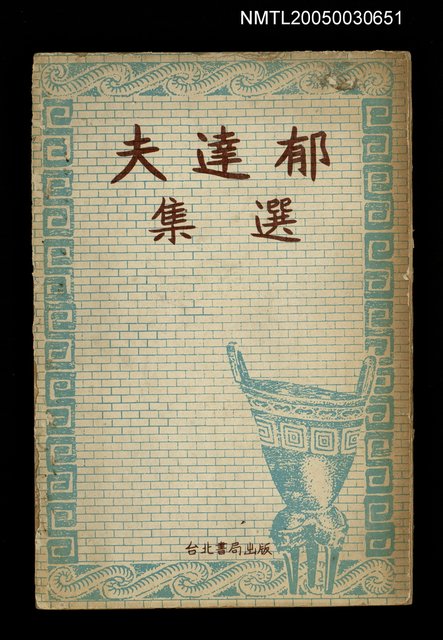 NMTL20050030651
郁達夫
選集
台北書局出版